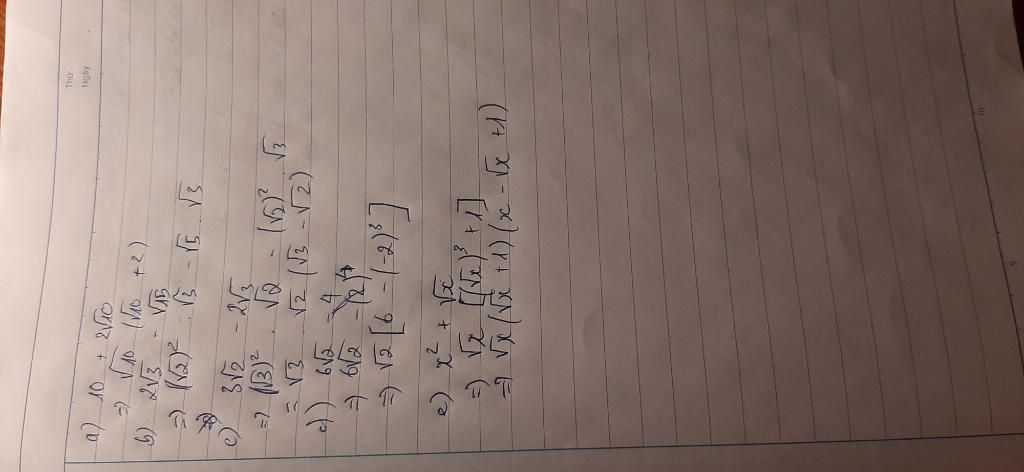 Thứ
Ngày
a) 10 + 2√10
=) √10 (√10 + 2)
b) 2√3 - √15
=) (√2)² . √3 - √5 . √3
c) 3√2 - 2√3
=) (√3)² . √2 - (√2)² . √3
= √3 . √2 (√3 - √2)
d) 6√2 - 4
=) 6√2 - (2)
=) √2 [6 - (-2)³]
e) x² + √x
=) √x [(√x)³ + 1]
=) √x (√x + 1) (x - √x + 1)
5
10